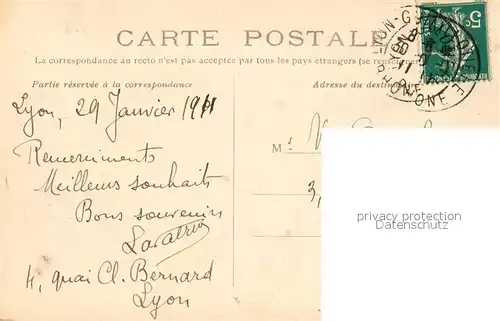 CARTE POSTALE
La correspondance au recto n'est pas acceptée par tous les pays étrangers (se renseigner
Partie réservée à la correspondance
Adresse du destin
Lyon, 29 Janvier 1911
Remerciments
Meilleurs souhaits
Bons souvenirs
4, quai Cl. Bernard
Lyon
M
3,
personenbezogene Daten
Datenschutz
5c
RHONE